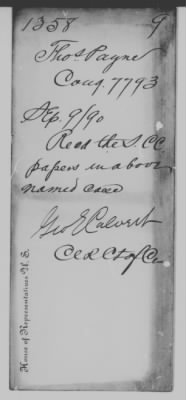 1358 9
Thos. Payne
Cong. 7793
Sep. 9/90
Recd the S.C.C.
papers in above
named case
Geo E Calvert
Clk Ct of Cls
House of Representatives U. S.